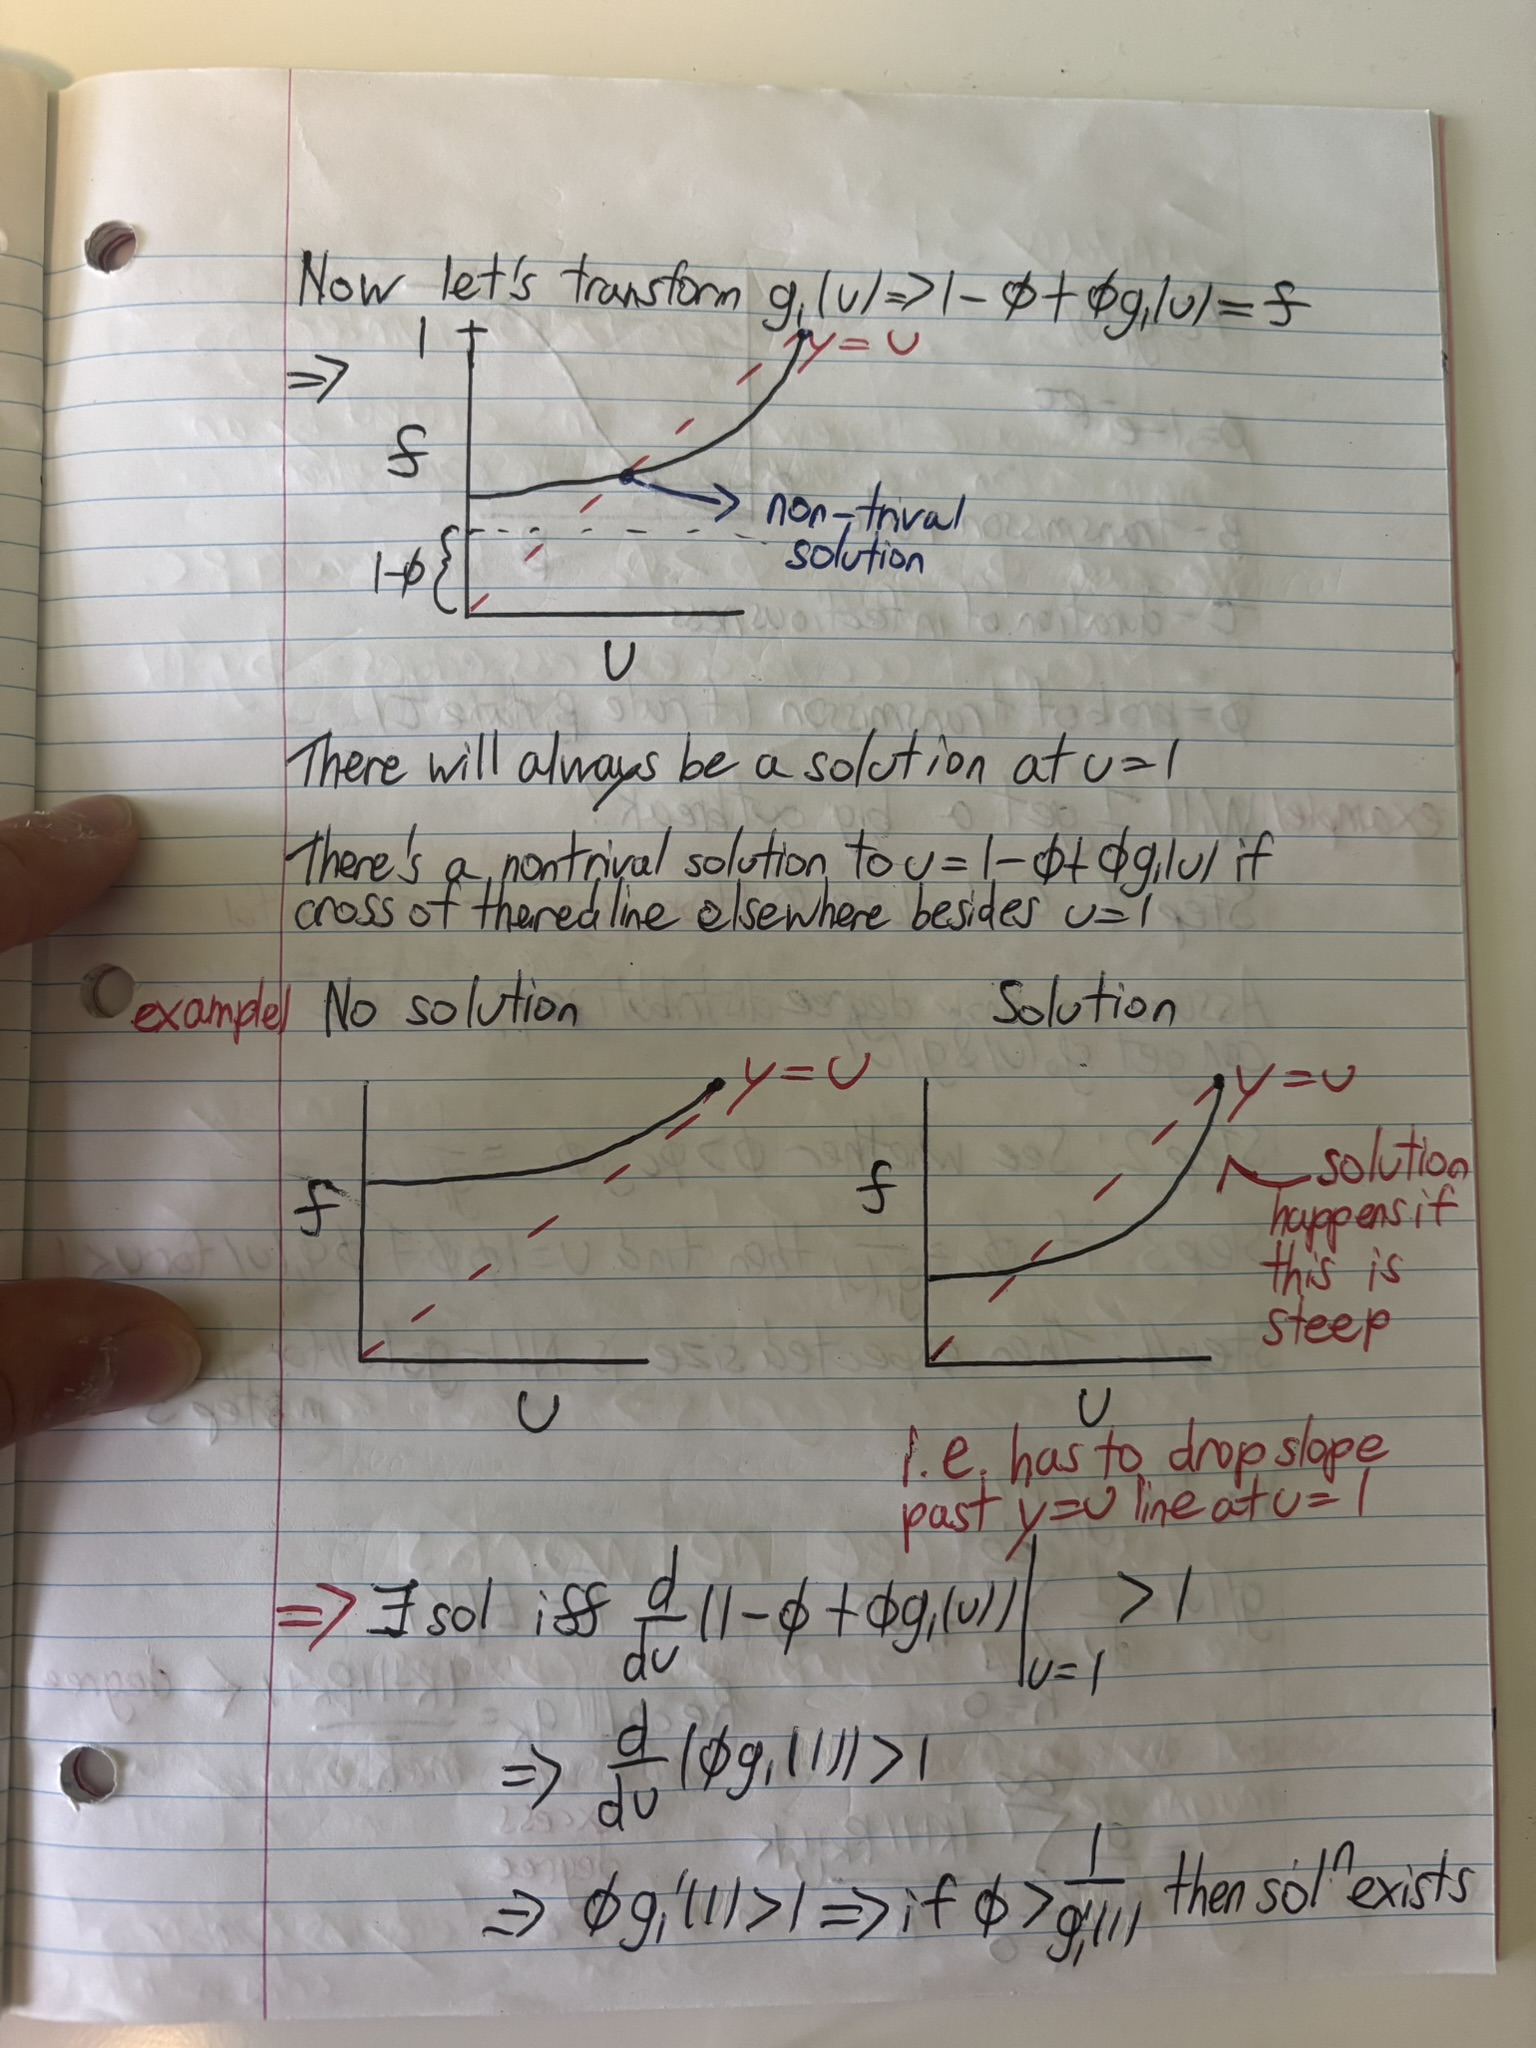 Now let's transform g₁(u)=>1-ϕ+ϕg₁(u)=f
1
y=u
=>
f
non-trival
solution
1-ϕ{
u
There will always be a solution at u=1
There's a nontrival solution to u=1-ϕ+ϕg₁(u) if
cross of the red line elsewhere besides u=1
example| No solution
Solution
y=u
y=u
f
f
solution
happens if
this is
steep
u
u
i.e. has to drop slope
past y=u line at u=1
=> ∃ sol iff d/du (1-ϕ+ϕg₁(u))|u=1 >1
=> d/du (ϕg₁(1))>1
=> ϕg₁'(1)>1 => if ϕ>1/g₁'(1) then solⁿ exists